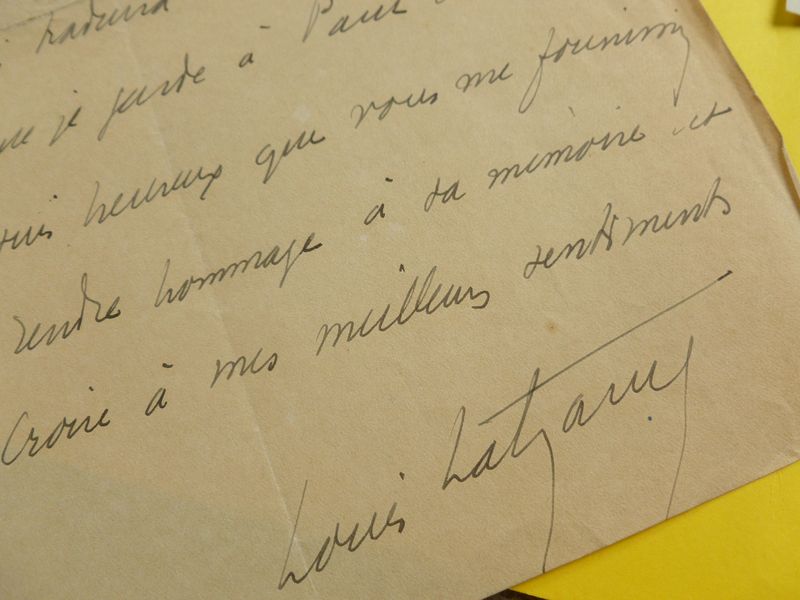 je garde à Paul
heureux que vous me fournissi
rendre hommage à sa mémoire et
Croire à mes meilleurs sentiments
Louis Latzarus